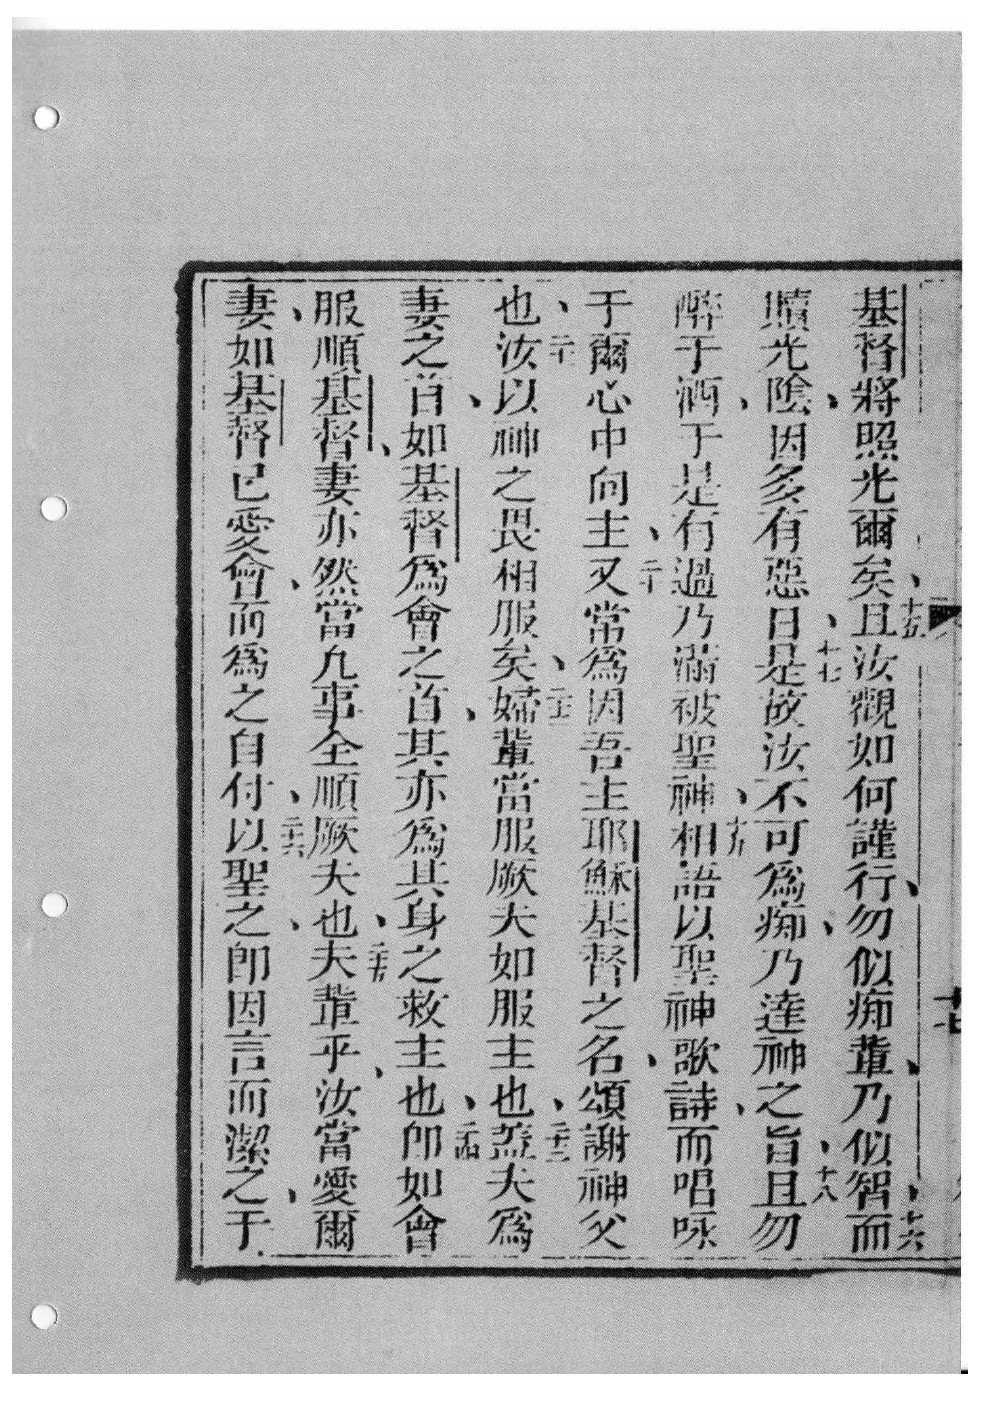 基督將照光爾矣、十五且汝觀如何謹行、勿似痴輩、乃似智、十六而
贖光陰、因多有惡日、十七是故汝不可爲痴、乃達神之旨、十八且勿
醉于酒、于是有過乃滿被聖神、十九相語以聖神歌詩、而唱咏
于爾心中向主、二十又常爲因吾主耶穌基督之名、頌謝神父
也、二十一汝以神之畏相服矣、二十二婦輩當服厥夫如服主也、二十三蓋夫爲
妻之首、如基督爲會之首、其亦爲其身之救主也、二十四即如會
服順基督、妻亦然當凢事全順厥夫也、二十五夫輩乎、汝當愛爾
妻、如基督已愛會、而爲之自付、二十六以聖之、即因言而潔之、于